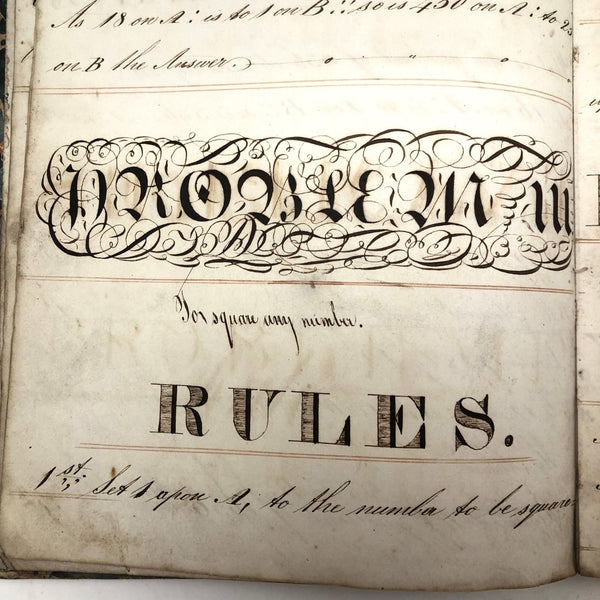 As 18 on A: is to 1 on B:: so is 450 on A: to 25
on B the Answer.
PROBLEM III
To square any number.
RULES.
1st. Set 1 upon A; to the number to be square